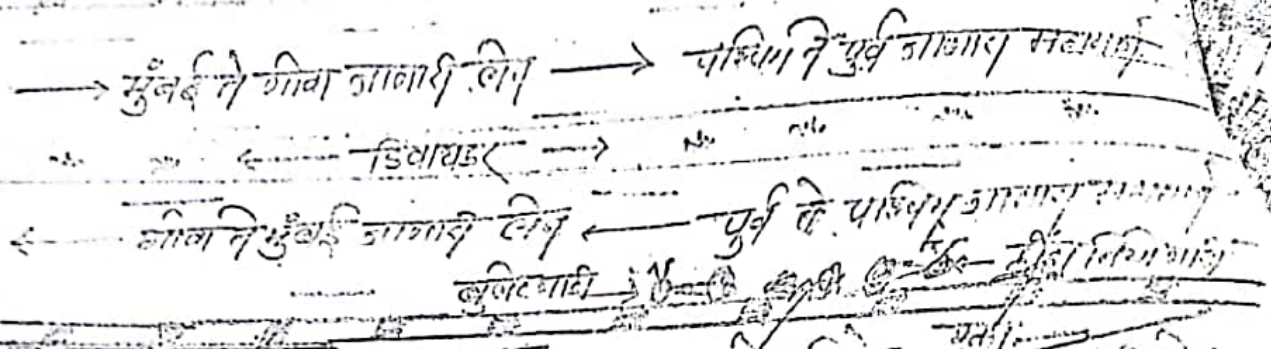 मुंबई ते गोवा जाणारी लेन पश्चिम ते पुर्व जाणारा महामार्ग
डिवायडर
गोवा ते मुंबई जाणारी लेन पुर्व ते पश्चिम जाणारा महामार्ग
बुलेट गाडी